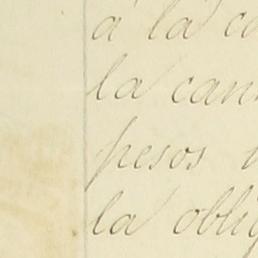 á la ca
la can
pesos
la oblig